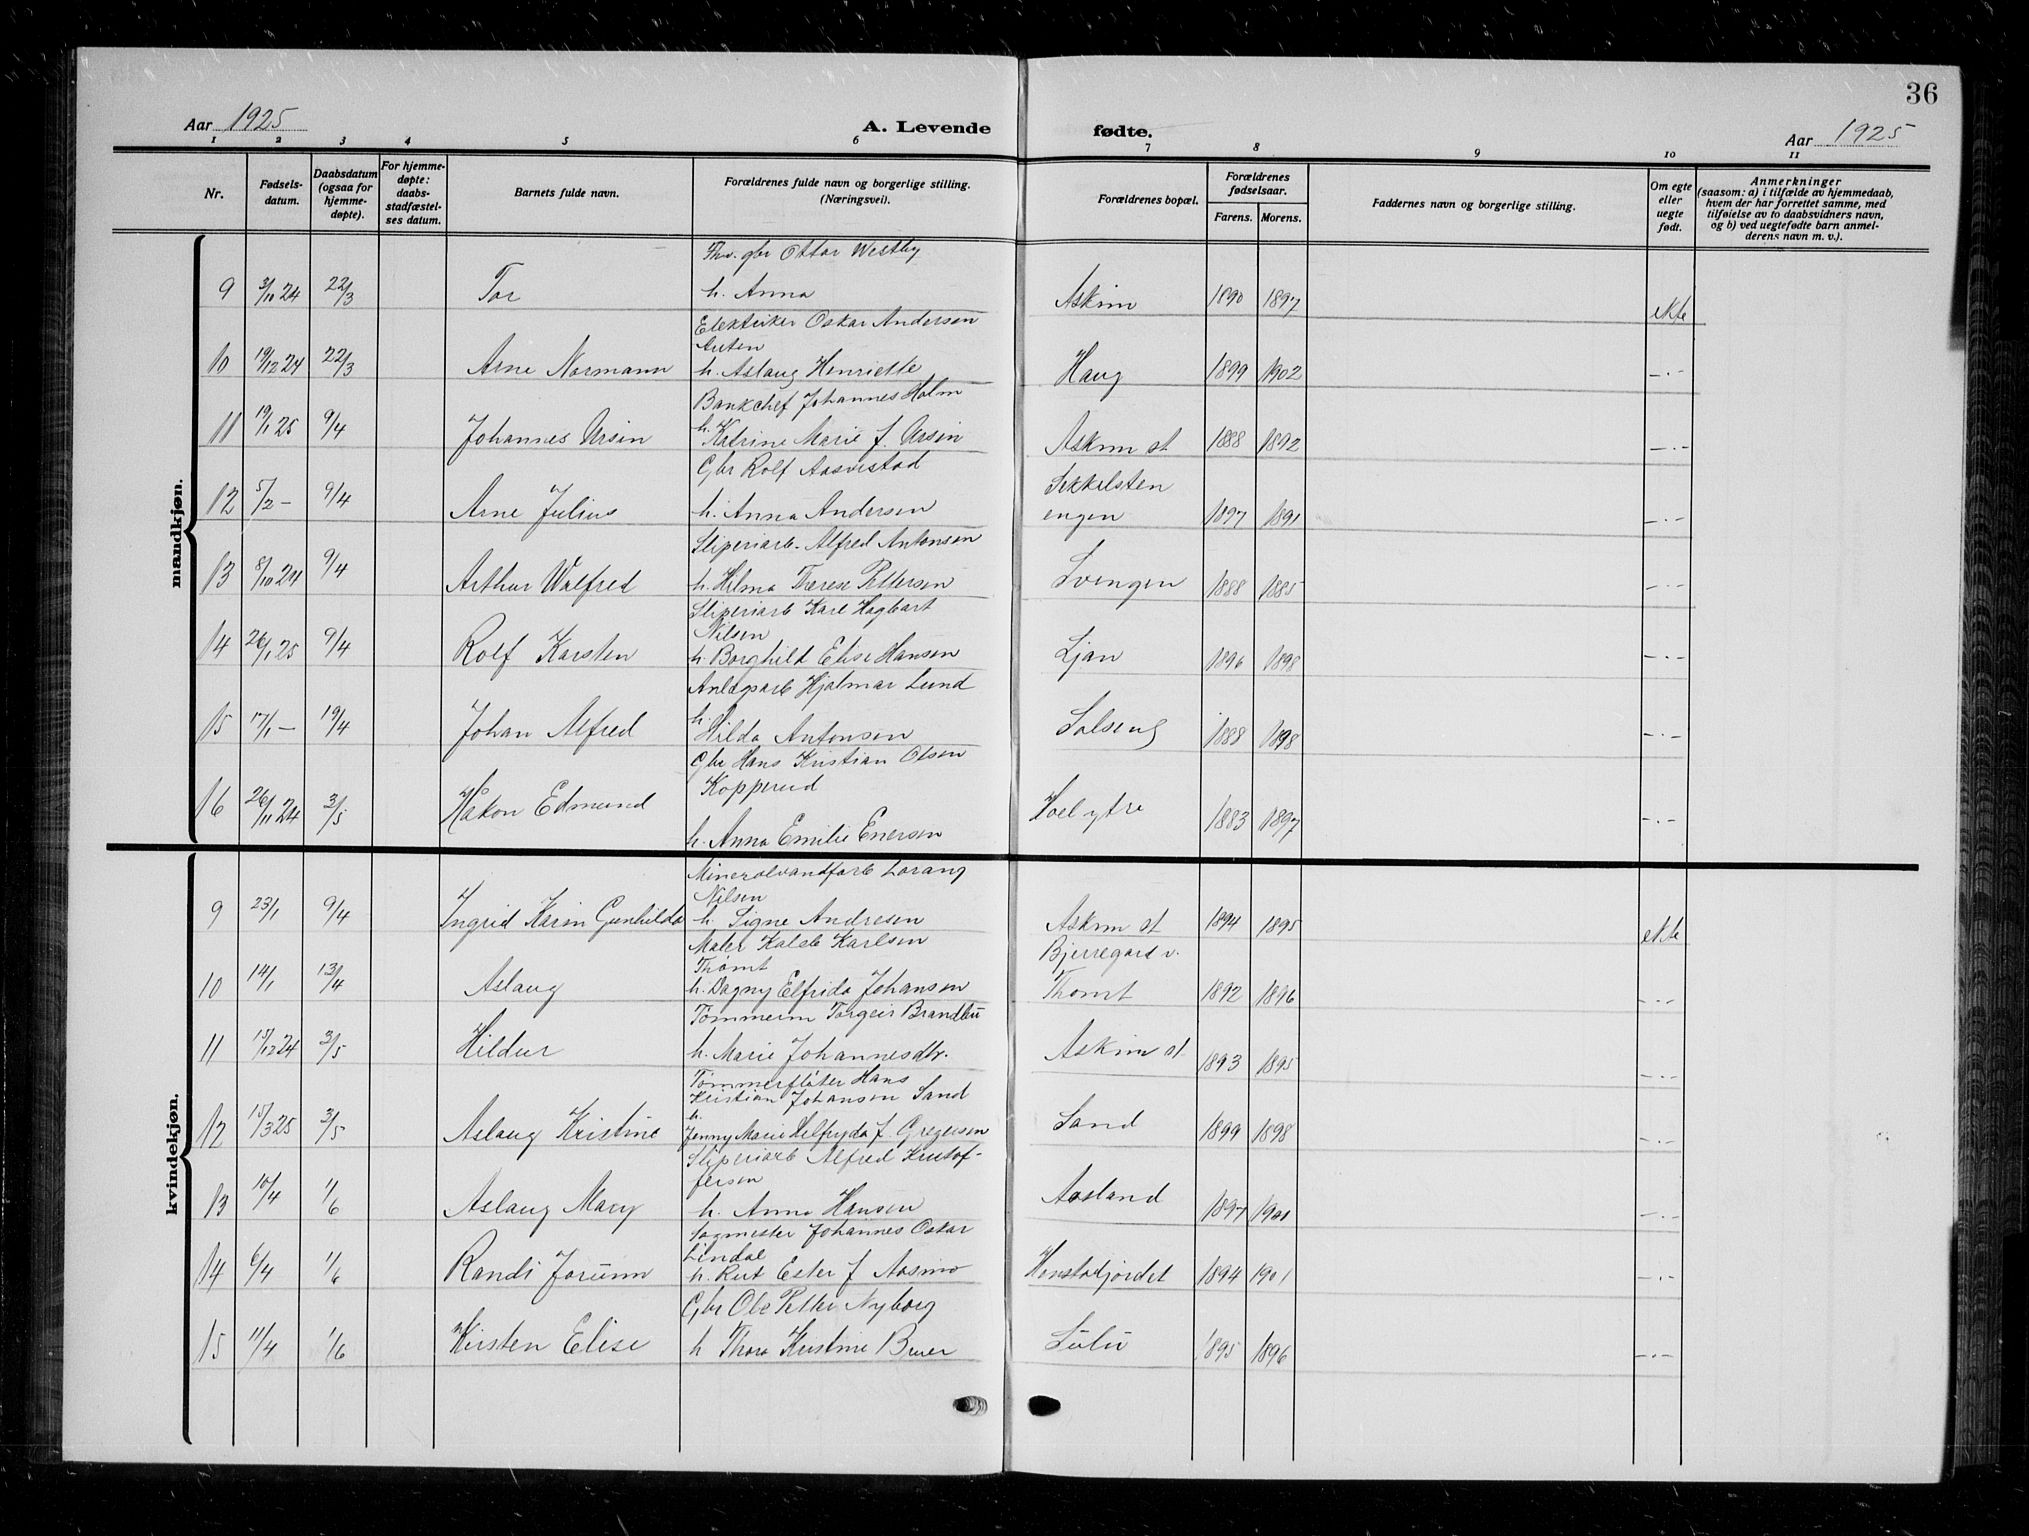 36
Aar 1925
A. Levende fødte.
Aar 1925
1 2 3 4 5 6 7 8 9 10 11
Nr.
Fødsels-
datum.
Daabsdatum
(ogsaa for
hjemme-
døpte).
For hjemme-
døpte:
daabs-
stadfæstel-
ses datum.
Barnets fulde navn.
Forældrenes fulde navn og borgerlige stilling.
(Næringsvei).
Forældrenes bopæl.
Forældrenes
fødselsaar.
Farens. Morens.
Faddernes navn og borgerlige stilling.
Om egte
eller
uegte
født.
Anmerkninger
(saasom: a) i tilfælde av hjemmedaab,
hvem der har forrettet samme, med
tilføielse av to daabsvidners navn,
og b) ved uegtefødte barn anmel-
derens navn m. v.).
mandkjøn.
gbr Ottar Westby
9 3/10 24 22/3 Tor h. Anna Askim 1890 1897 ekte
Elektriker Oskar Andersen
Auten
10 19/12 24 22/3 Arne Normann h. Aslaug Henriette Haug 1899 1902 -.-
Bankchef Johannes Holm
11 19/1 25 9/4 Johannes Ursin h. Katrine Marie f. Ursin Askim st 1888 1892 -.-
Gbr Rolf Aasvestad
12 5/2 - 9/4 Arne Julius h. Anna Andersen Sekkelsten
engen 1897 1891 -.-
Sliperiarb. Alfred Antonsen
13 8/10 24 9/4 Arthur Walfred h. Hilma Terese Pettersen Svengen 1888 1885 -.-
Sliperiarb Karl Hagbart
Nilsen
14 26/1 25 9/4 Rolf Karsten h. Borghild Elise Hansen Ljan 1896 1898 -.-
Anlegsarb Hjalmar Lund
15 17/1 - 19/4 Johan Alfred h. Hilda Antonsen Solseng 1888 1898 -.-
Gbr Hans Kristian Olsen
Kopperud
16 26/11 24 3/5 Håkon Edmund h. Anna Emilie Enersen Hoel ytre 1883 1897 -.-
kvindekjøn.
Mineralvandfarb Lorang
Nilsen
9 23/1 9/4 Ingrid Karin Gunhilda h. Signe Andresen Askim st 1894 1895 ekte
Maler Kaleb Karlsen
Thømt
10 14/1 13/4 Aslaug h. Dagny Elfrida Johansen Bjerregard v.
Thømt 1892 1896 -.-
Tømmerm Torgeir Brandbu
11 15/12 24 3/5 Hildur h. Marie Johannesdtr. Askim st 1893 1895 -.-
Tømmerfløter Hans
Kristian Johansen Sand
12 15/3 25 3/5 Aslaug Kristine h. Jenny Marie Helfryda f. Gregersen Sand 1899 1898 -.-
Sliperiarb Alfred Kristof-
fersen
13 10/4 1/6 Aslaug Mary h. Anna Hansen Aasland 1897 1901 -.-
Sagmester Johannes Oskar
Lindal
14 6/4 1/6 Randi Jorunn h. Rut Ester f Aasmo Honstadjordet 1894 1901 -.-
Gbr Ole Petter Nyborg
15 11/4 1/6 Kirsten Elise h Thora Kristine Buer Lulu 1895 1896 -.-